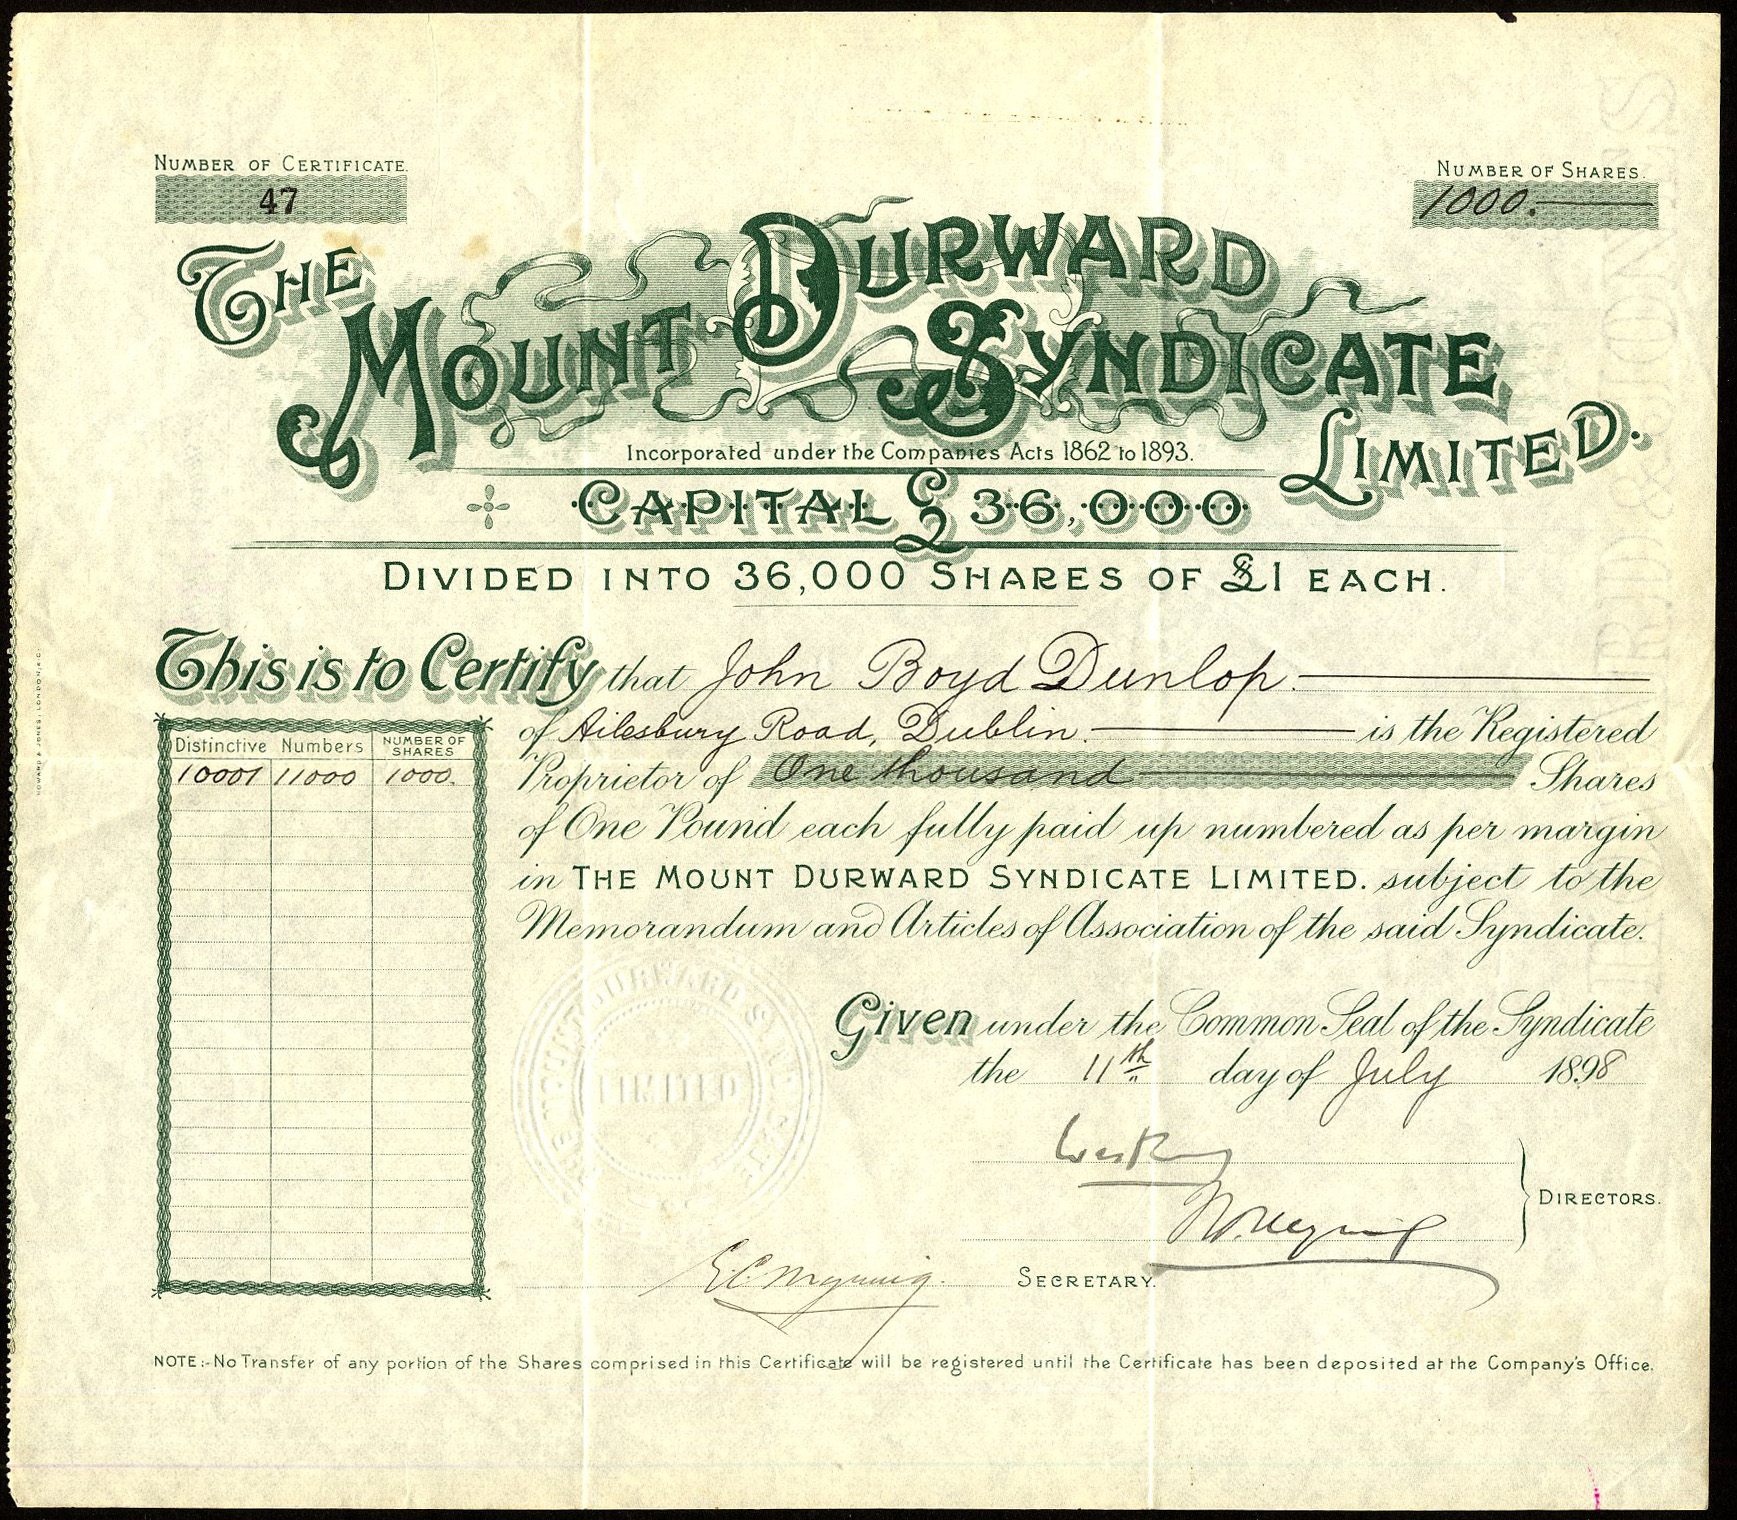 NUMBER OF CERTIFICATE.
47
NUMBER OF SHARES.
1000.
THE
MOUNT DURWARD
SYNDICATE
LIMITED.
Incorporated under the Companies Acts 1862 to 1893.
CAPITAL £36,000
DIVIDED INTO 36,000 SHARES OF £1 EACH.
This is to Certify that John Boyd Dunlop.
of Ailesbury Road, Dublin. is the Registered
Proprietor of One thousand Shares
of One Pound each fully paid up numbered as per margin
in THE MOUNT DURWARD SYNDICATE LIMITED. subject to the
Memorandum and Articles of Association of the said Syndicate.
Distinctive Numbers NUMBER OF SHARES
10001 11000 1000.
THE MOUNT DURWARD SYNDICATE
LIMITED
Given under the Common Seal of the Syndicate
the 11th day of July 1898
DIRECTORS.
SECRETARY.
NOTE:-No Transfer of any portion of the Shares comprised in this Certificate will be registered until the Certificate has been deposited at the Company's Office.
HOWARD & JONES, LONDON, E.C.